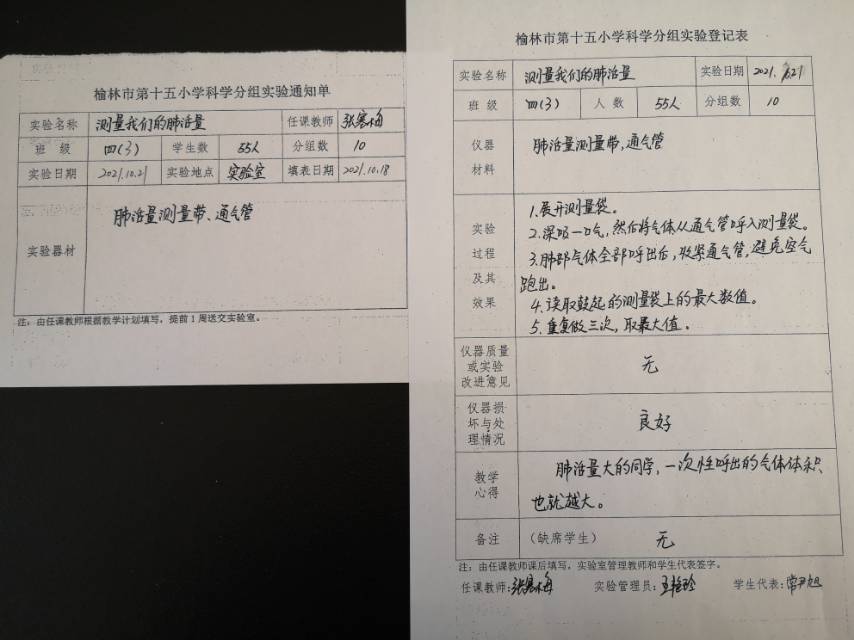 榆林市第十五小学科学分组实验通知单
实验名称 测量我们的肺活量 任课教师 张寒梅
班 级 四(3) 学生数 55人 分组数 10
实验日期 2021.10.21 实验地点 实验室 填表日期 2021.10.18
实验器材 肺活量测量带、通气管
注：由任课教师根据教学计划填写，提前1周送交实验室。
榆林市第十五小学科学分组实验登记表
实验名称 测量我们的肺活量 实验日期 2021.
班 级 四(3) 人 数 55人 分组数 10
仪器 肺活量测量带,通气管
材料
1.展开测量袋。
实验 2.深吸一口气,然后将气体从通气管呼入测量袋。
过程 3.肺部气体全部呼出后,收紧通气管,避免空气
及其 跑出。
效果 4.读取鼓起的测量袋上的最大数值。
5.重复做三次,取最大值。
仪器质量
或实验 无
改进意见
仪器损
坏与处 良好
理情况
教学 肺活量大的同学,一次性呼出的气体体积
心得 也就越大。
备注 (缺席学生) 无
注：由任课教师课后填写，实验室管理教师和学生代表签字。
任课教师:张寒梅 实验管理员: 学生代表: